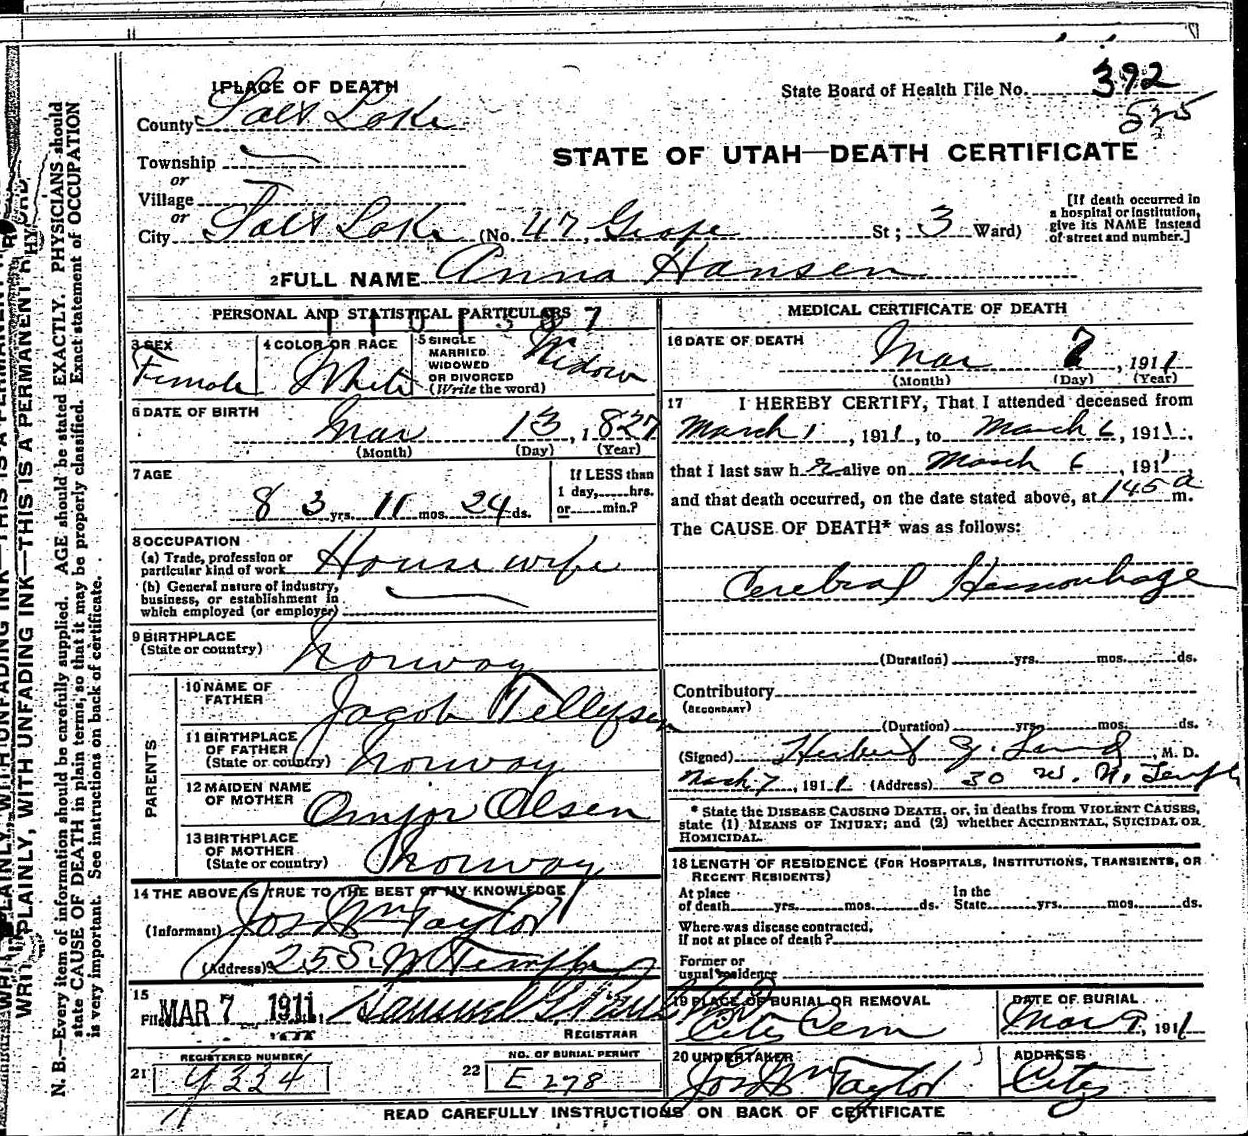 1 PLACE OF DEATH
State Board of Health File No. 392
525
County Salt Lake
STATE OF UTAH—DEATH CERTIFICATE
Township
or
Village
or
City Salt Lake (No. 47, Grape St; 3 Ward)
[If death occurred in
a hospital or institution,
give its NAME instead
of street and number.]
2 FULL NAME Anna Hansen
PERSONAL AND STATISTICAL PARTICULARS
3 SEX
Female
4 COLOR OR RACE
White
5 SINGLE
MARRIED
WIDOWED
OR DIVORCED
(Write the word)
Widow
6 DATE OF BIRTH
Mar 13, 1827
(Month) (Day) (Year)
7 AGE
83 yrs. 11 mos. 24 ds.
If LESS than
1 day,.....hrs.
or.....min.?
8 OCCUPATION
(a) Trade, profession or
particular kind of work
House wife
(b) General nature of industry,
business, or establishment in
which employed (or employer)
9 BIRTHPLACE
(State or country)
Norway
PARENTS
10 NAME OF
FATHER
Jacob Tellefsen
11 BIRTHPLACE
OF FATHER
(State or country)
Norway
12 MAIDEN NAME
OF MOTHER
Olsen
13 BIRTHPLACE
OF MOTHER
(State or country)
Norway
14 THE ABOVE IS TRUE TO THE BEST OF MY KNOWLEDGE
(Informant) Jos Wm Taylor
(Address) 25 S. W Temple
15
Filed MAR 7 1911, Samuel G
REGISTRAR
REGISTERED NUMBER
21
NO. OF BURIAL PERMIT
22 E 278
MEDICAL CERTIFICATE OF DEATH
16 DATE OF DEATH
Mar 7, 1911
(Month) (Day) (Year)
17 I HEREBY CERTIFY, That I attended deceased from
March 1, 1911, to March 6, 1911,
that I last saw her alive on March 6, 191',
and that death occurred, on the date stated above, at 145 a m.
The CAUSE OF DEATH* was as follows:
Cerebral Hemorrhage
(Duration) yrs. mos. ds.
Contributory
(SECONDARY)
(Duration) yrs. mos. ds.
(Signed) Herbert, M. D.
Mch 7, 1911 (Address) 30 W. N. Temple
* State the DISEASE CAUSING DEATH, or, in deaths from VIOLENT CAUSES,
state (1) MEANS OF INJURY; and (2) whether ACCIDENTAL, SUICIDAL OR
HOMICIDAL.
18 LENGTH OF RESIDENCE (FOR HOSPITALS, INSTITUTIONS, TRANSIENTS, OR
RECENT RESIDENTS)
At place
of death yrs. mos. ds.
In the
State yrs. mos. ds.
Where was disease contracted,
if not at place of death?
Former or
usual residence
19 PLACE OF BURIAL OR REMOVAL
City Cem
DATE OF BURIAL
Mar 9, 1911
20 UNDERTAKER
Jos Wm Taylor
ADDRESS
City
READ CAREFULLY INSTRUCTIONS ON BACK OF CERTIFICATE
WRITE PLAINLY, WITH UNFADING INK—THIS IS A PERMANENT RECORD
N. B.—Every item of information should be carefully supplied. AGE should be stated EXACTLY. PHYSICIANS should
state CAUSE OF DEATH in plain terms, so that it may be properly classified. Exact statement of OCCUPATION
is very important. See instructions on back of certificate.